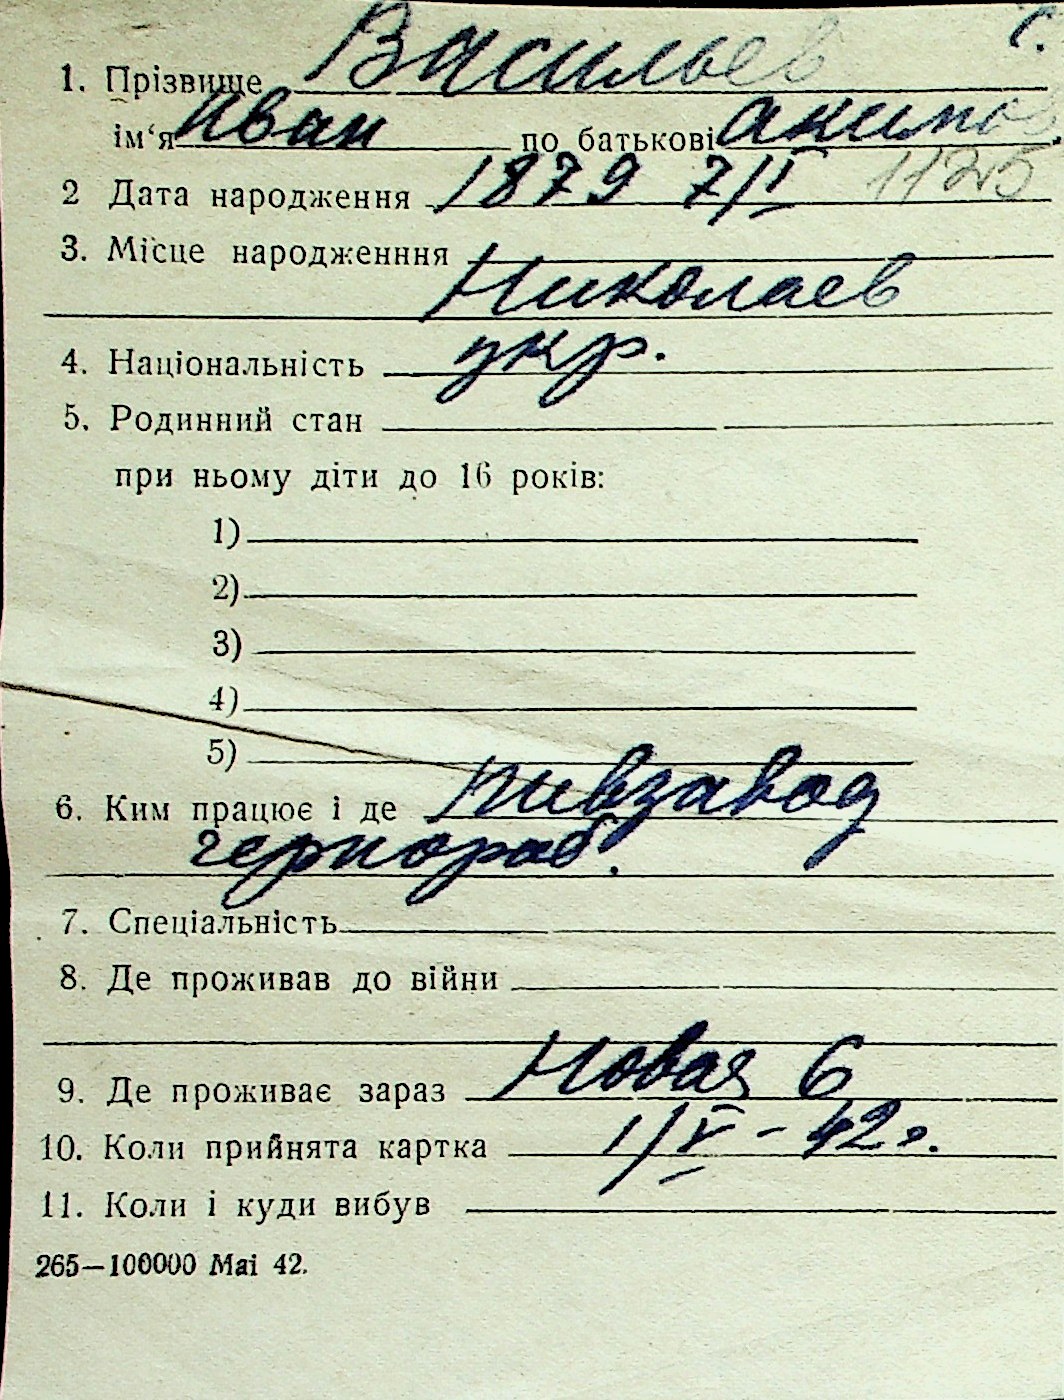 С.
1. Прізвище Васильев
ім‘я Иван по батькові Акимов
2 Дата народження 1879 7/I 1125
3. Місце народженння
Николаев
4. Національність укр.
5. Родинний стан
при ньому діти до 16 років:
1)
2)
3)
4)
5)
6. Ким працює і де пивзавод
чернораб.
7. Спеціальність
8. Де проживав до війни
9. Де проживає зараз Новая 6
10. Коли прийнята картка 1/V - 42 г.
11. Коли і куди вибув
265—100000 Mai 42.